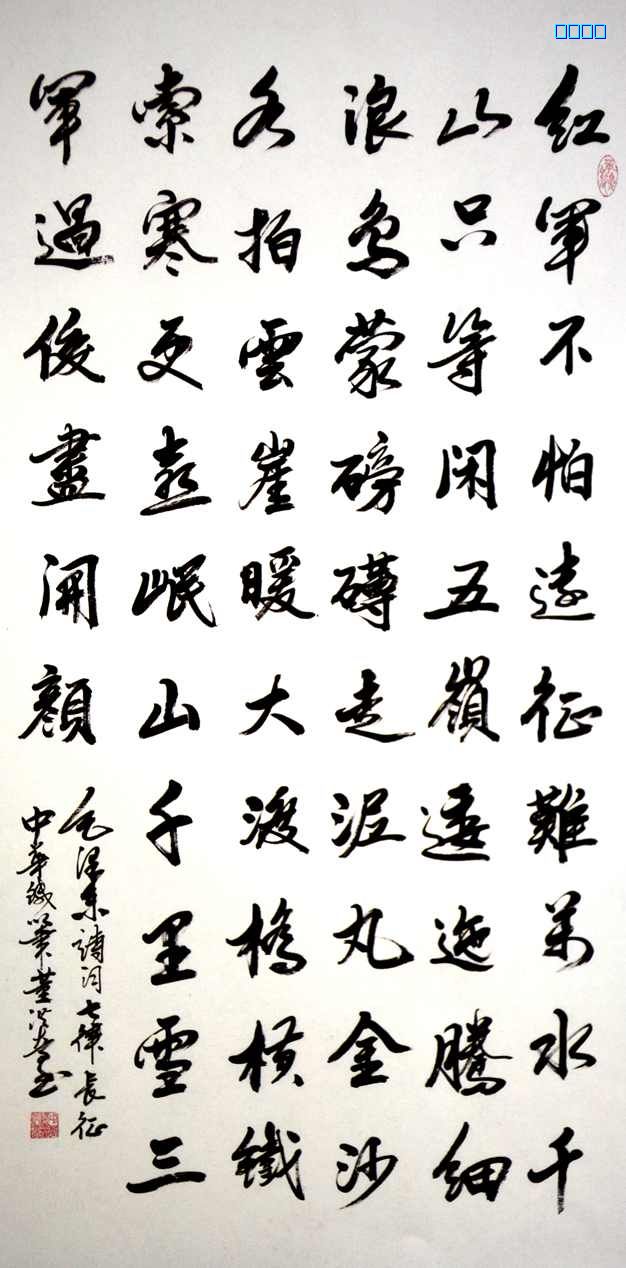 紅軍不怕遠征難萬水千
山只等閑五嶺逶迤騰細
浪烏蒙磅礴走泥丸金沙
水拍雲崖暖大渡橋橫鐵
索寒更喜岷山千里雪三
軍過後盡開顏
毛澤東詩詞七律長征
中華鐵筆董洪